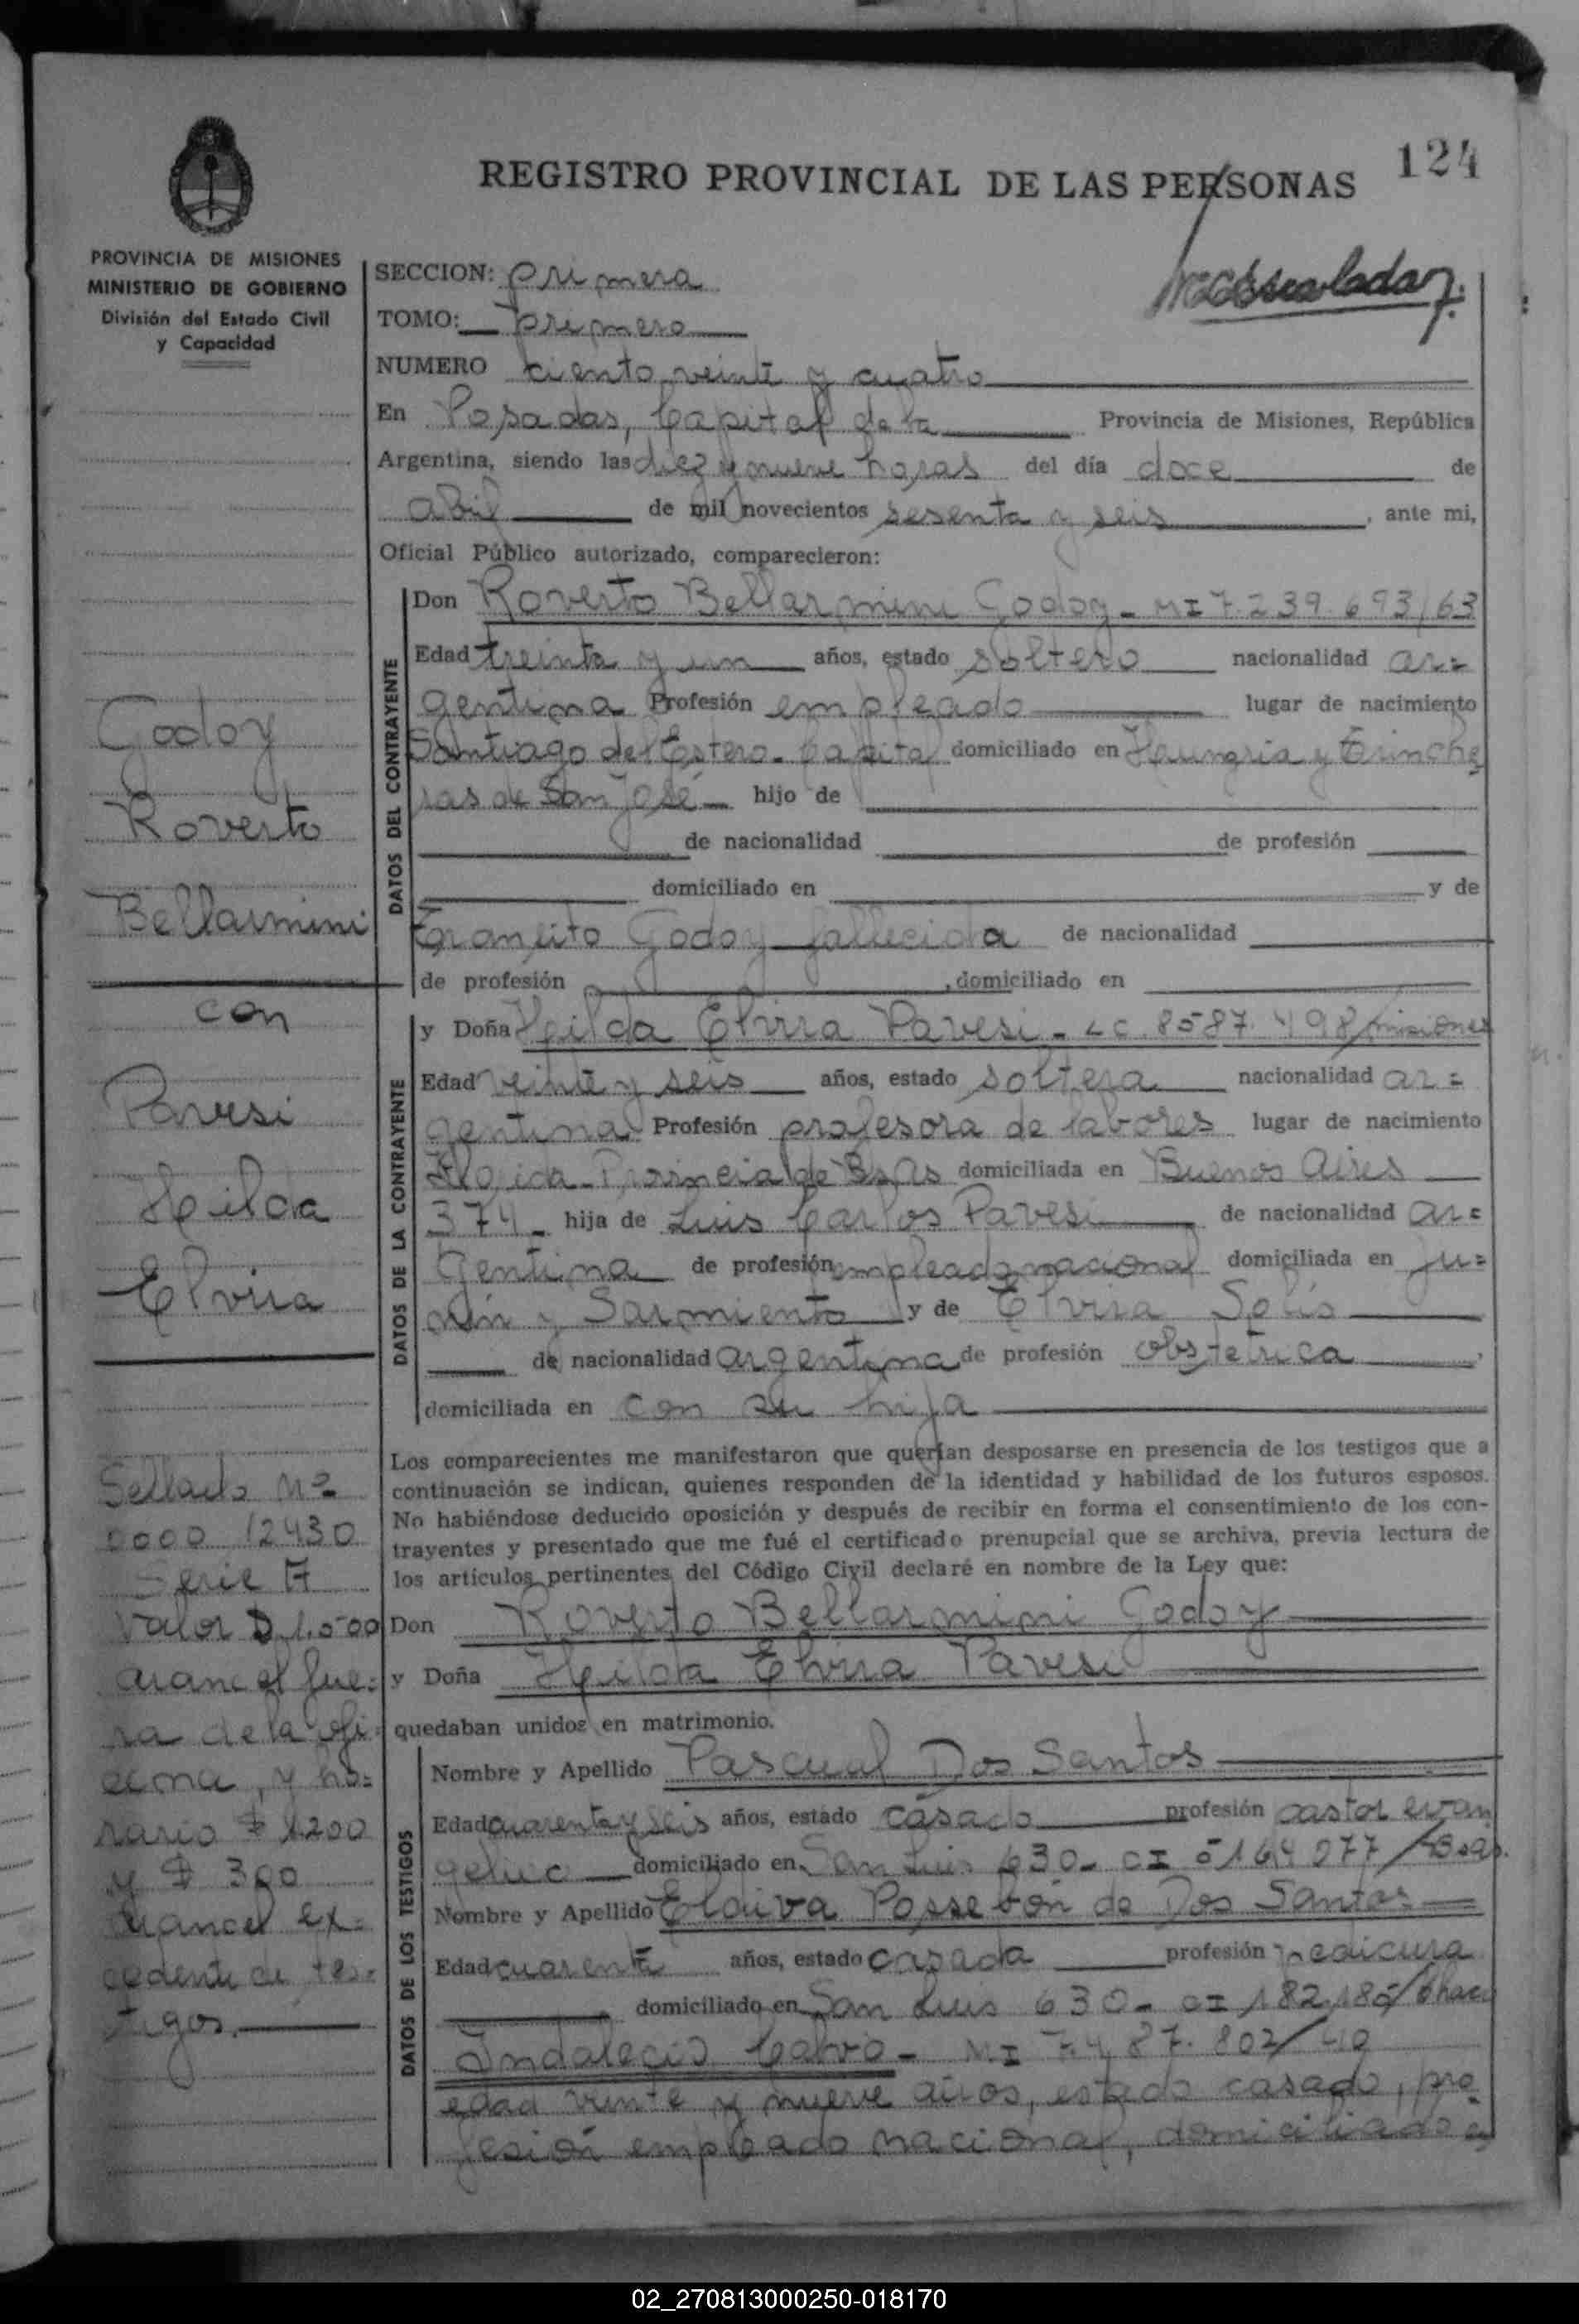 124
REGISTRO PROVINCIAL DE LAS PERSONAS
PROVINCIA DE MISIONES
MINISTERIO DE GOBIERNO
División del Estado Civil
y Capacidad
SECCION: primera
TOMO: primero
NUMERO ciento veinte y cuatro
En Posadas, Capital de la Provincia de Misiones, República
Argentina, siendo las diez y nueve horas del día doce de
abril de mil novecientos sesenta y seis, ante mi,
Oficial Público autorizado, comparecieron:
DATOS DEL CONTRAYENTE
Don Roverto Bellarmini Godoy - MI 7.239.693/63
Edad treinta y un años, estado soltero nacionalidad ar=
gentina Profesión empleado lugar de nacimiento
Santiago del Estero - Capital domiciliado en Hungria y Trinche
ras de San José hijo de
de nacionalidad de profesión
domiciliado en y de
Transito Godoy fallecida de nacionalidad
de profesión , domiciliado en
DATOS DE LA CONTRAYENTE
y Doña Hilda Elvira Pavesi - LC. 8587.498/misiones
Edad veinte y seis años, estado soltera nacionalidad ar=
gentina Profesión profesora de labores lugar de nacimiento
Provincia de Bs As domiciliada en Buenos Aires
374 - hija de Luis Carlos Pavesi de nacionalidad ar=
gentina de profesión empleado nacional domiciliada en Ju=
nín y Sarmiento y de Elvira Solís
de nacionalidad argentina de profesión obstetrica ,
domiciliada en con su hija
Los comparecientes me manifestaron que querían desposarse en presencia de los testigos que a
continuación se indican, quienes responden de la identidad y habilidad de los futuros esposos.
No habiéndose deducido oposición y después de recibir en forma el consentimiento de los con-
trayentes y presentado que me fué el certificado prenupcial que se archiva, previa lectura de
los artículos pertinentes del Código Civil declaré en nombre de la Ley que:
Don Roverto Bellarmini Godoy
y Doña Hilda Elvira Pavesi
quedaban unidos en matrimonio.
DATOS DE LOS TESTIGOS
Nombre y Apellido Pascual Dos Santos
Edad cuarenta y seis años, estado casado profesión pastor evan
gelico domiciliado en San Luis 630 -
Nombre y Apellido Elaiva Possebón de Dos Santos
Edad cuarenta años, estado casada profesión pedicura
domiciliado en San Luis 630 - CI 182.185/Chaco
Indalecio Calvo - MI 7.487.802/40
edad veinte y nueve años, estado casado, pro
fesión empleado nacional, domiciliado en
Godoy
Roverto
Bellarmini
con
Pavesi
Hilda
Elvira
Sellado Nº
0000 12430
Serie A
Valor $ 1.500
arancel fue=
ra de la ofi=
cina, y ho=
rario $ 1200
y $ 300
arancel ex=
cedente de tes=
tigos.
02_270813000250-018170